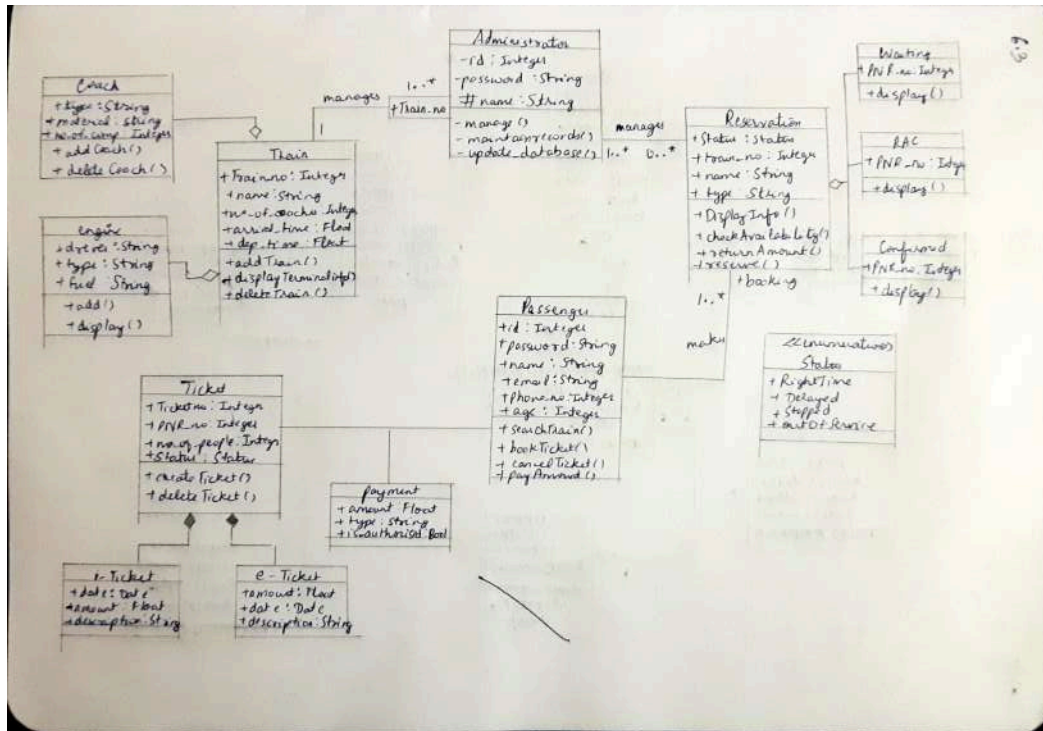 6.3
Coach
+ type : String
+ material : String
+ no-of-comp Integer
+ addCoach()
+ deleteCoach()
Engine
+ driver : String
+ type : String
+ fuel String
+ add()
+ display()
manages
1..*
1
+ Train_no
Train
+ Train.no : Integer
+ name : String
+ no-of-coaches Integer
+ arrival_time : Float
+ dep. time : Float
+ addTrain()
+ displayTerminalinfo()
+ deleteTrain()
Administrator
- id : Integer
- password : String
# name : String
- manage()
- maintainrecords()
- update_database()
manages
1..* 0..*
Reservation
+ Status : Status
+ train_no : Integer
+ name : String
+ type : String
+ DisplayInfo()
+ checkAvailability()
+ returnAmount()
+ reserve()
+ booking
1..*
Waiting
+ PNR_no. Integer
+ display()
RAC
+ PNR_no : Integer
+ display()
Confirmed
+ PNR_no. Integer
+ display()
Passenger
+ id : Integer
+ password : String
+ name : String
+ email : String
+ Phone_no. Integer
+ age : Integer
+ searchTrain()
+ bookTicket()
+ cancelTicket()
+ payAmount()
Status
+ RightTime
+ Delayed
+ Stopped
+ outOfService
Ticket
+ Ticketno : Integer
+ PNR_no : Integer
+ no_of_people : Integer
+ Status : Status
+ createTicket()
+ deleteTicket()
payment
+ amount : Float
+ type : String
+ is-authorised : Bool
i-Ticket
+ date : Date
+ amount : Float
+ description : String
e - Ticket
+ amount : Float
+ date : Date
+ description : String